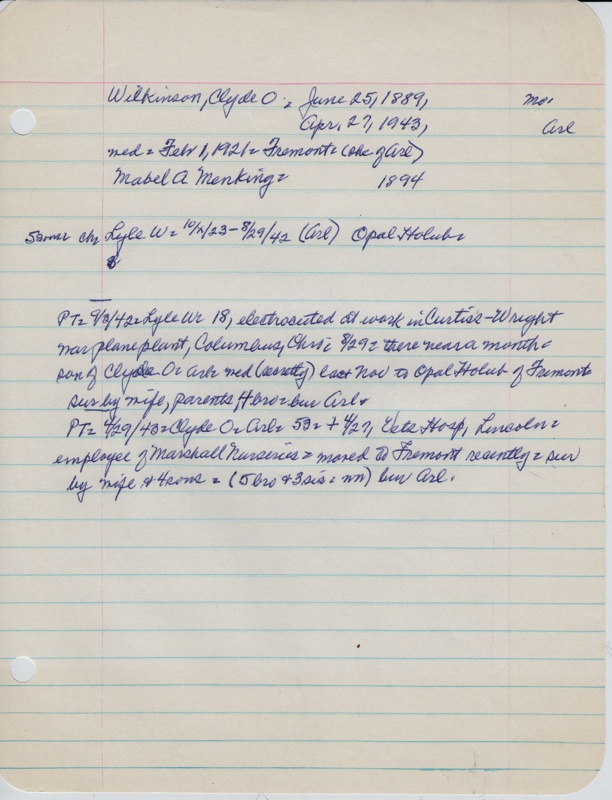 Wilkinson, Clyde O = June 25, 1889, Mo.
Apr. 27, 1943, Arl
med = Feb 1, 1921 = Fremont = (she of Arl)
Mabel A Menking = 1894
5 sons ch = Lyle W = 10/2/23 - 8/29/42 (Arl) Opal Holub =
PT = 9/3/42 = Lyle W = 18, electrocuted at work in Curtiss-Wright
war plane plant, Columbus, Ohio = 8/29 = there near a month =
son of Clyde O = Arl = med (secretly) last Nov to Opal Holub of Fremont
sur by wife, parents, 4 bro = bur Arl.
PT = 4/29/43 = Clyde O = Arl = 53 = + 4/27, Vets Hosp, Lincoln =
employee of Marshall Nurseries = moved to Fremont recently = sur
by wife & 4 sons = (5 bro & 3 sis = nn) bur Arl.